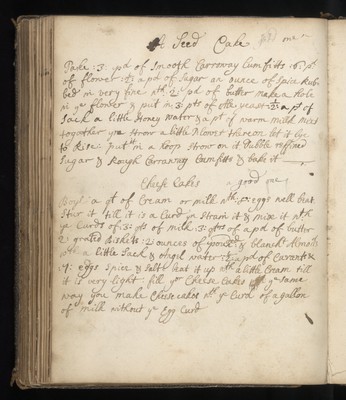 A Seed Cake
Take :3: pd of Smooth Carroway Cumfitts :6: pd
of flower :½: a pd of Sugar an ounce of Spice Rub
bed in very fine wth 2 pd of butter make a Hole
in ye flower & put in 3 pts of Ale yeast :½: a pt of
Sack a little Honey water & a pt of warm milk mix
together yn strow a little flower thereon let it lye
to Rise put it in a Hoop strow on it Duble refined
Sugar & Rough Carraway Cumfitts & bake it
Cheese Cakes good
Boyl a qt of Cream or milk wth eggs well beat
Stir it till it is a Curd yn Strain it & mix it wth
ye Curds of :3: qts of milk :3: qtrs of a pd of butter
2 grated Biskets :2: ounces of & blanch Almonds
wth a little Sack & orange water :½: a pd of Currants &
:7: eggs Spice & Salt beat it up wth a little Cream till
it is very light fill yr Cheese Cakes ye same
way you make Cheesecakes wth ye Curd of a gallon
of milk without ye Egg Curd